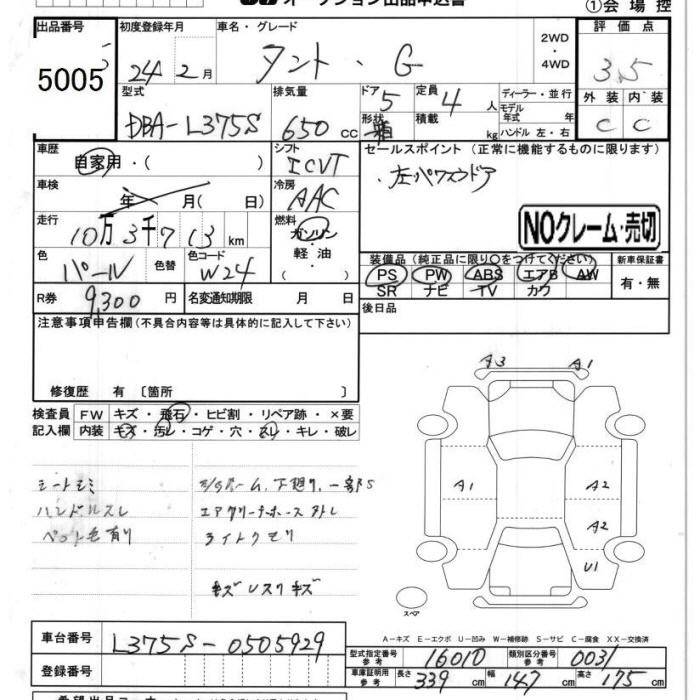 オークション出品申込書
①会場控
出品番号 初度登録年月 車名・グレード 2WD ・ 4WD 評価点
5005 24年2月 タント・G 3.5
型式 排気量 ドア 5 定員 4人 ディーラー・並行 外装 内装
DBA-L375S 650cc 形状 箱 積載 kg モデル年式 年式 ハンドル 左・右 C C
車歴 自家用・( ) シフト ICVT セールスポイント (正常に機能するものに限ります)
車検 年 月(日) 冷房 AAC ・左パワスラドア
走行 10万3千713km 燃料 ガソリン・軽油・ NOクレーム・売切
色 パール 色替 色コード W24 装備品 (純正品に限り○をつけてください) 新車保証書
PS PW ABS エアB AW 有・無
SR ナビ TV カワ
R券 9,300円 名変通知期限 月 日 後日品
注意事項申告欄 (不具合内容等は具体的に記入して下さい)
修復歴 有〔箇所 〕
検査員 FW キズ・飛石・ヒビ割・リペア跡・×要
記入欄 内装 キズ・汚レ・コゲ・穴・スレ・キレ・破レ
A3 A1
シートシミ 下廻リ、一部S
ハンドルスレ エアクリーナーホースナシ
ペット毛有り ライトクモリ
A1 A2
A2
U1
キズ Uスリキズ
スペア
A-キズ E-エクボ U-凹み W-補修跡 S-サビ C-腐食 XX-交換済
車台番号 L375S-0505929
型式指定番号 参考 16010 類別区分番号 参考 0031
登録番号 車庫証明用 参考 長さ 339cm 幅 147cm 高さ 175cm